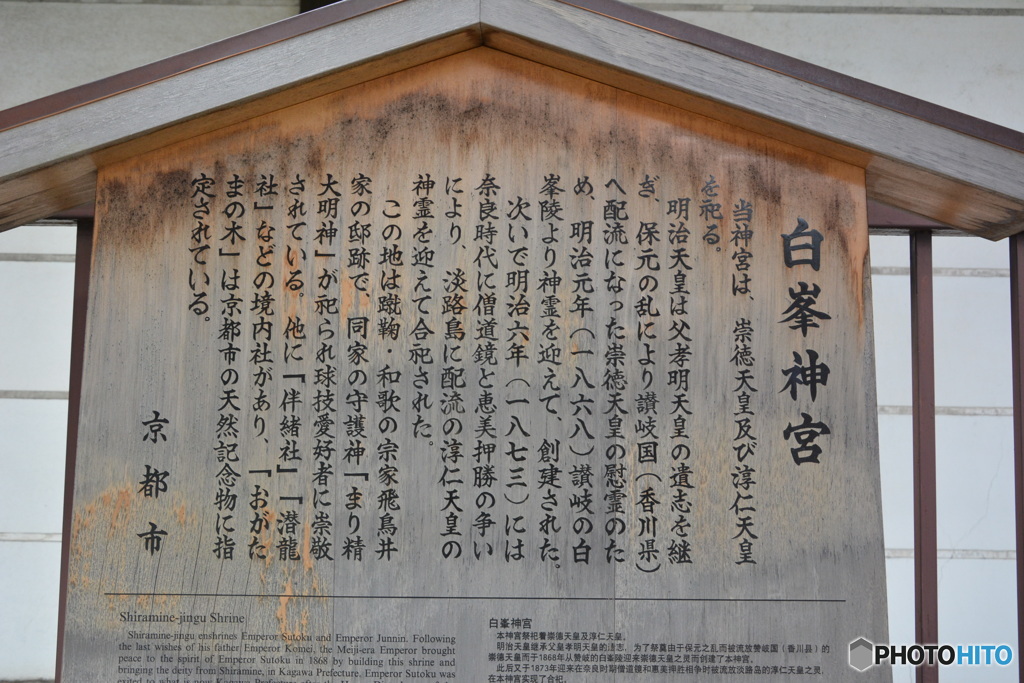 白峯神宮
当神宮は、崇徳天皇及び淳仁天皇
を祀る。
明治天皇は父孝明天皇の遺志を継
ぎ、保元の乱により讃岐国（香川県）
へ配流になった崇徳天皇の慰霊のた
め、明治元年（一八六八）讃岐の白
峯陵より神霊を迎えて、創建された。
次いで明治六年（一八七三）には
奈良時代に僧道鏡と恵美押勝の争い
により、淡路島に配流の淳仁天皇の
神霊を迎えて合祀された。
この地は蹴鞠・和歌の宗家飛鳥井
家の邸跡で、同家の守護神「まり精
大明神」が祀られ球技愛好者に崇敬
されている。他に「伴緒社」「潜龍
社」などの境内社があり、「おがた
まの木」は京都市の天然記念物に指
定されている。
京都市
Shiramine-jingu Shrine
Shiramine-jingu enshrines Emperor Sutoku and Emperor Junnin. Following
the last wishes of his father Emperor Komei, the Meiji-era Emperor brought
peace to the spirit of Emperor Sutoku in 1868 by building this shrine and
bringing the deity from Shiramine, in Kagawa Prefecture. Emperor Sutoku was
exiled to what is now Kagawa Prefecture after the
白峯神宫
本神宫祭祀着崇德天皇及淳仁天皇。
明治天皇继承父皇孝明天皇的 为了祭奠由于保元之乱而被流放赞岐国（香川县）的
崇德天皇而于1868年从赞岐的白峯陵迎来崇德天皇之灵而创建了本神宫。
此后又于1873年迎来在奈良时期僧道镜和惠美押胜相争时被流放淡路岛的淳仁天皇之灵，
在本神宫实现了合祀。
PHOTOHITO